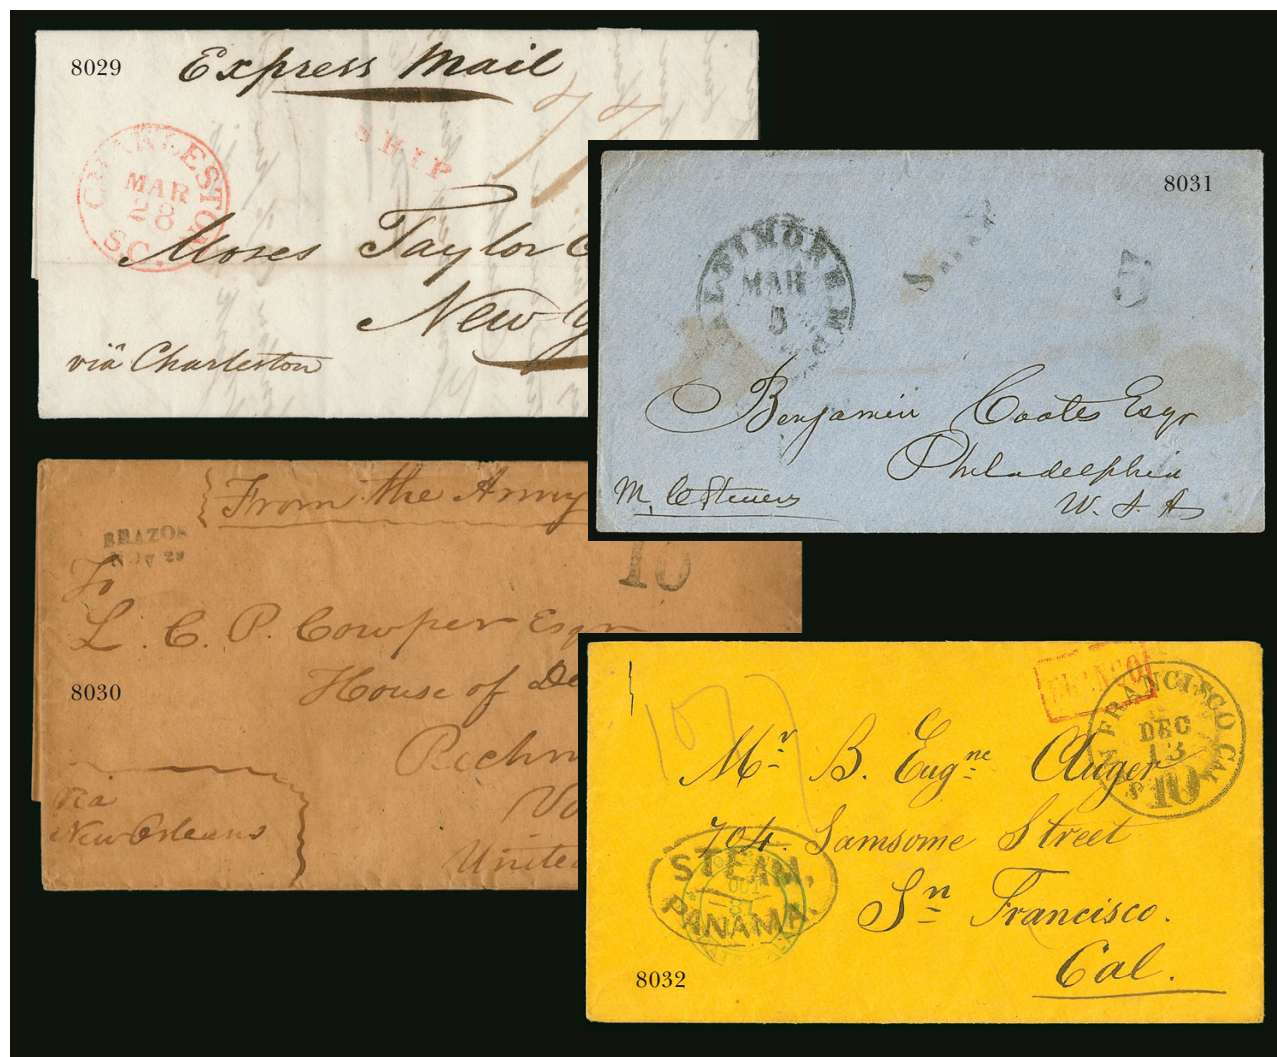 8029
Express Mail
77
SHIP
CHARLESTON
MAR
28
S.C.
Moses Taylor
New
viâ Charleston
8031
MAR
5
Benjamin Coates Esqr
Philadelphia
U. S. A
8030
From the Army
BRAZOS
NOV 29
10
To
L. C. P. Cowper Esqr
House of De
Richm
Via
New Orleans
United
8032
SAN FRANCISCO CAL
DEC
13
10
Mr B. Eugne Auger
704. Samsome Street
Sn Francisco.
Cal.
STEAM,
PANAMA.
OCT
31